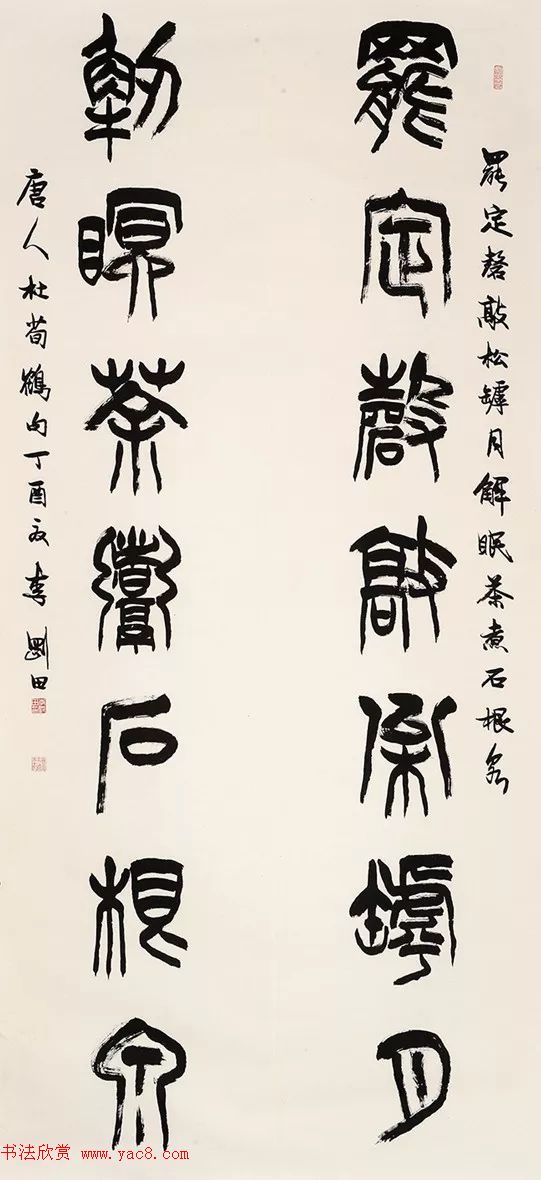 罷定磬敲松罅月解眠茶煮石根泉
罷定磬敲松罅月
解瞑茶煮石根泉
唐人杜荀鶴句丁酉夏李剛田
书法欣赏 www.yac8.com